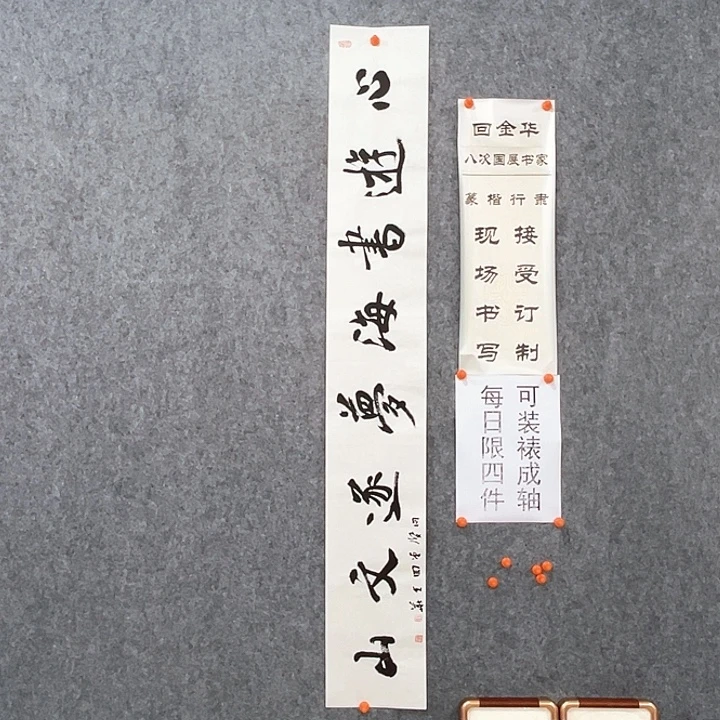 心遊書海夢逐文山
回金华
八次国展书家
篆楷行
接受订制
现场书写
可装裱成轴
每日限四件